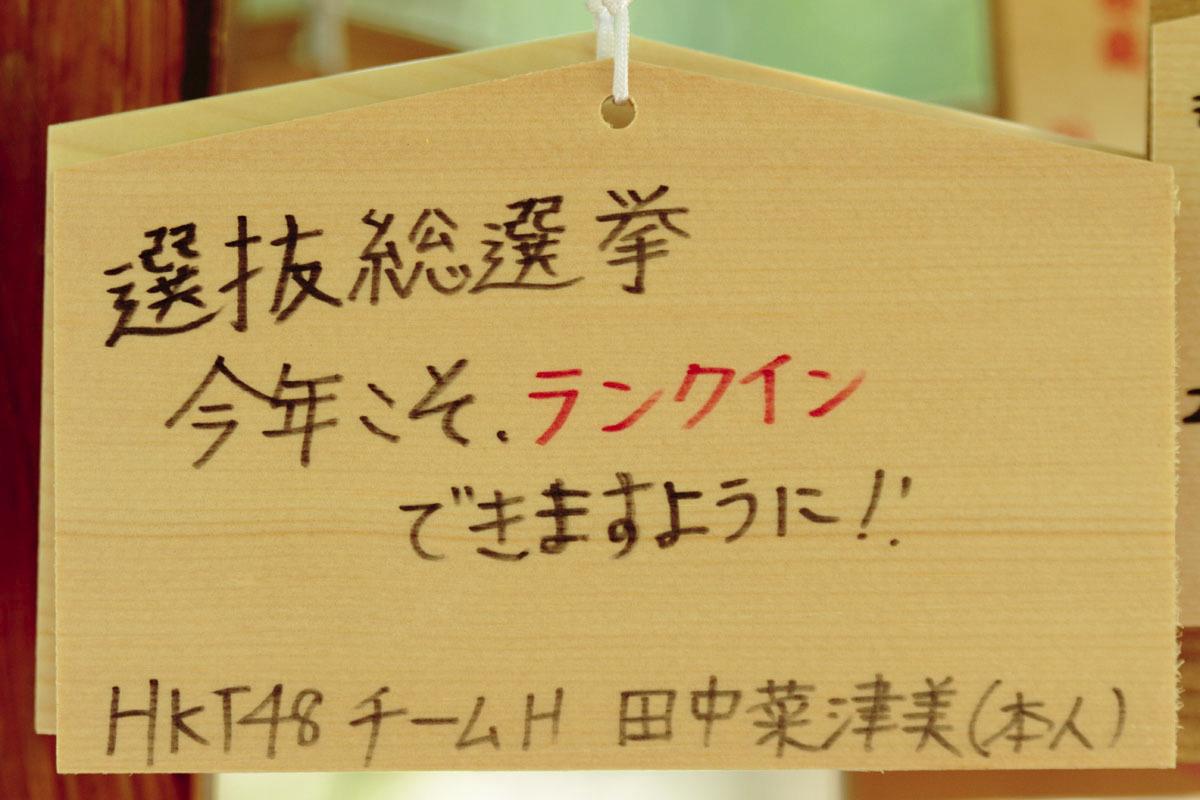 選抜総選挙
今年こそ、ランクイン
できますように!!
HKT48 チームH 田中菜津美(本人)